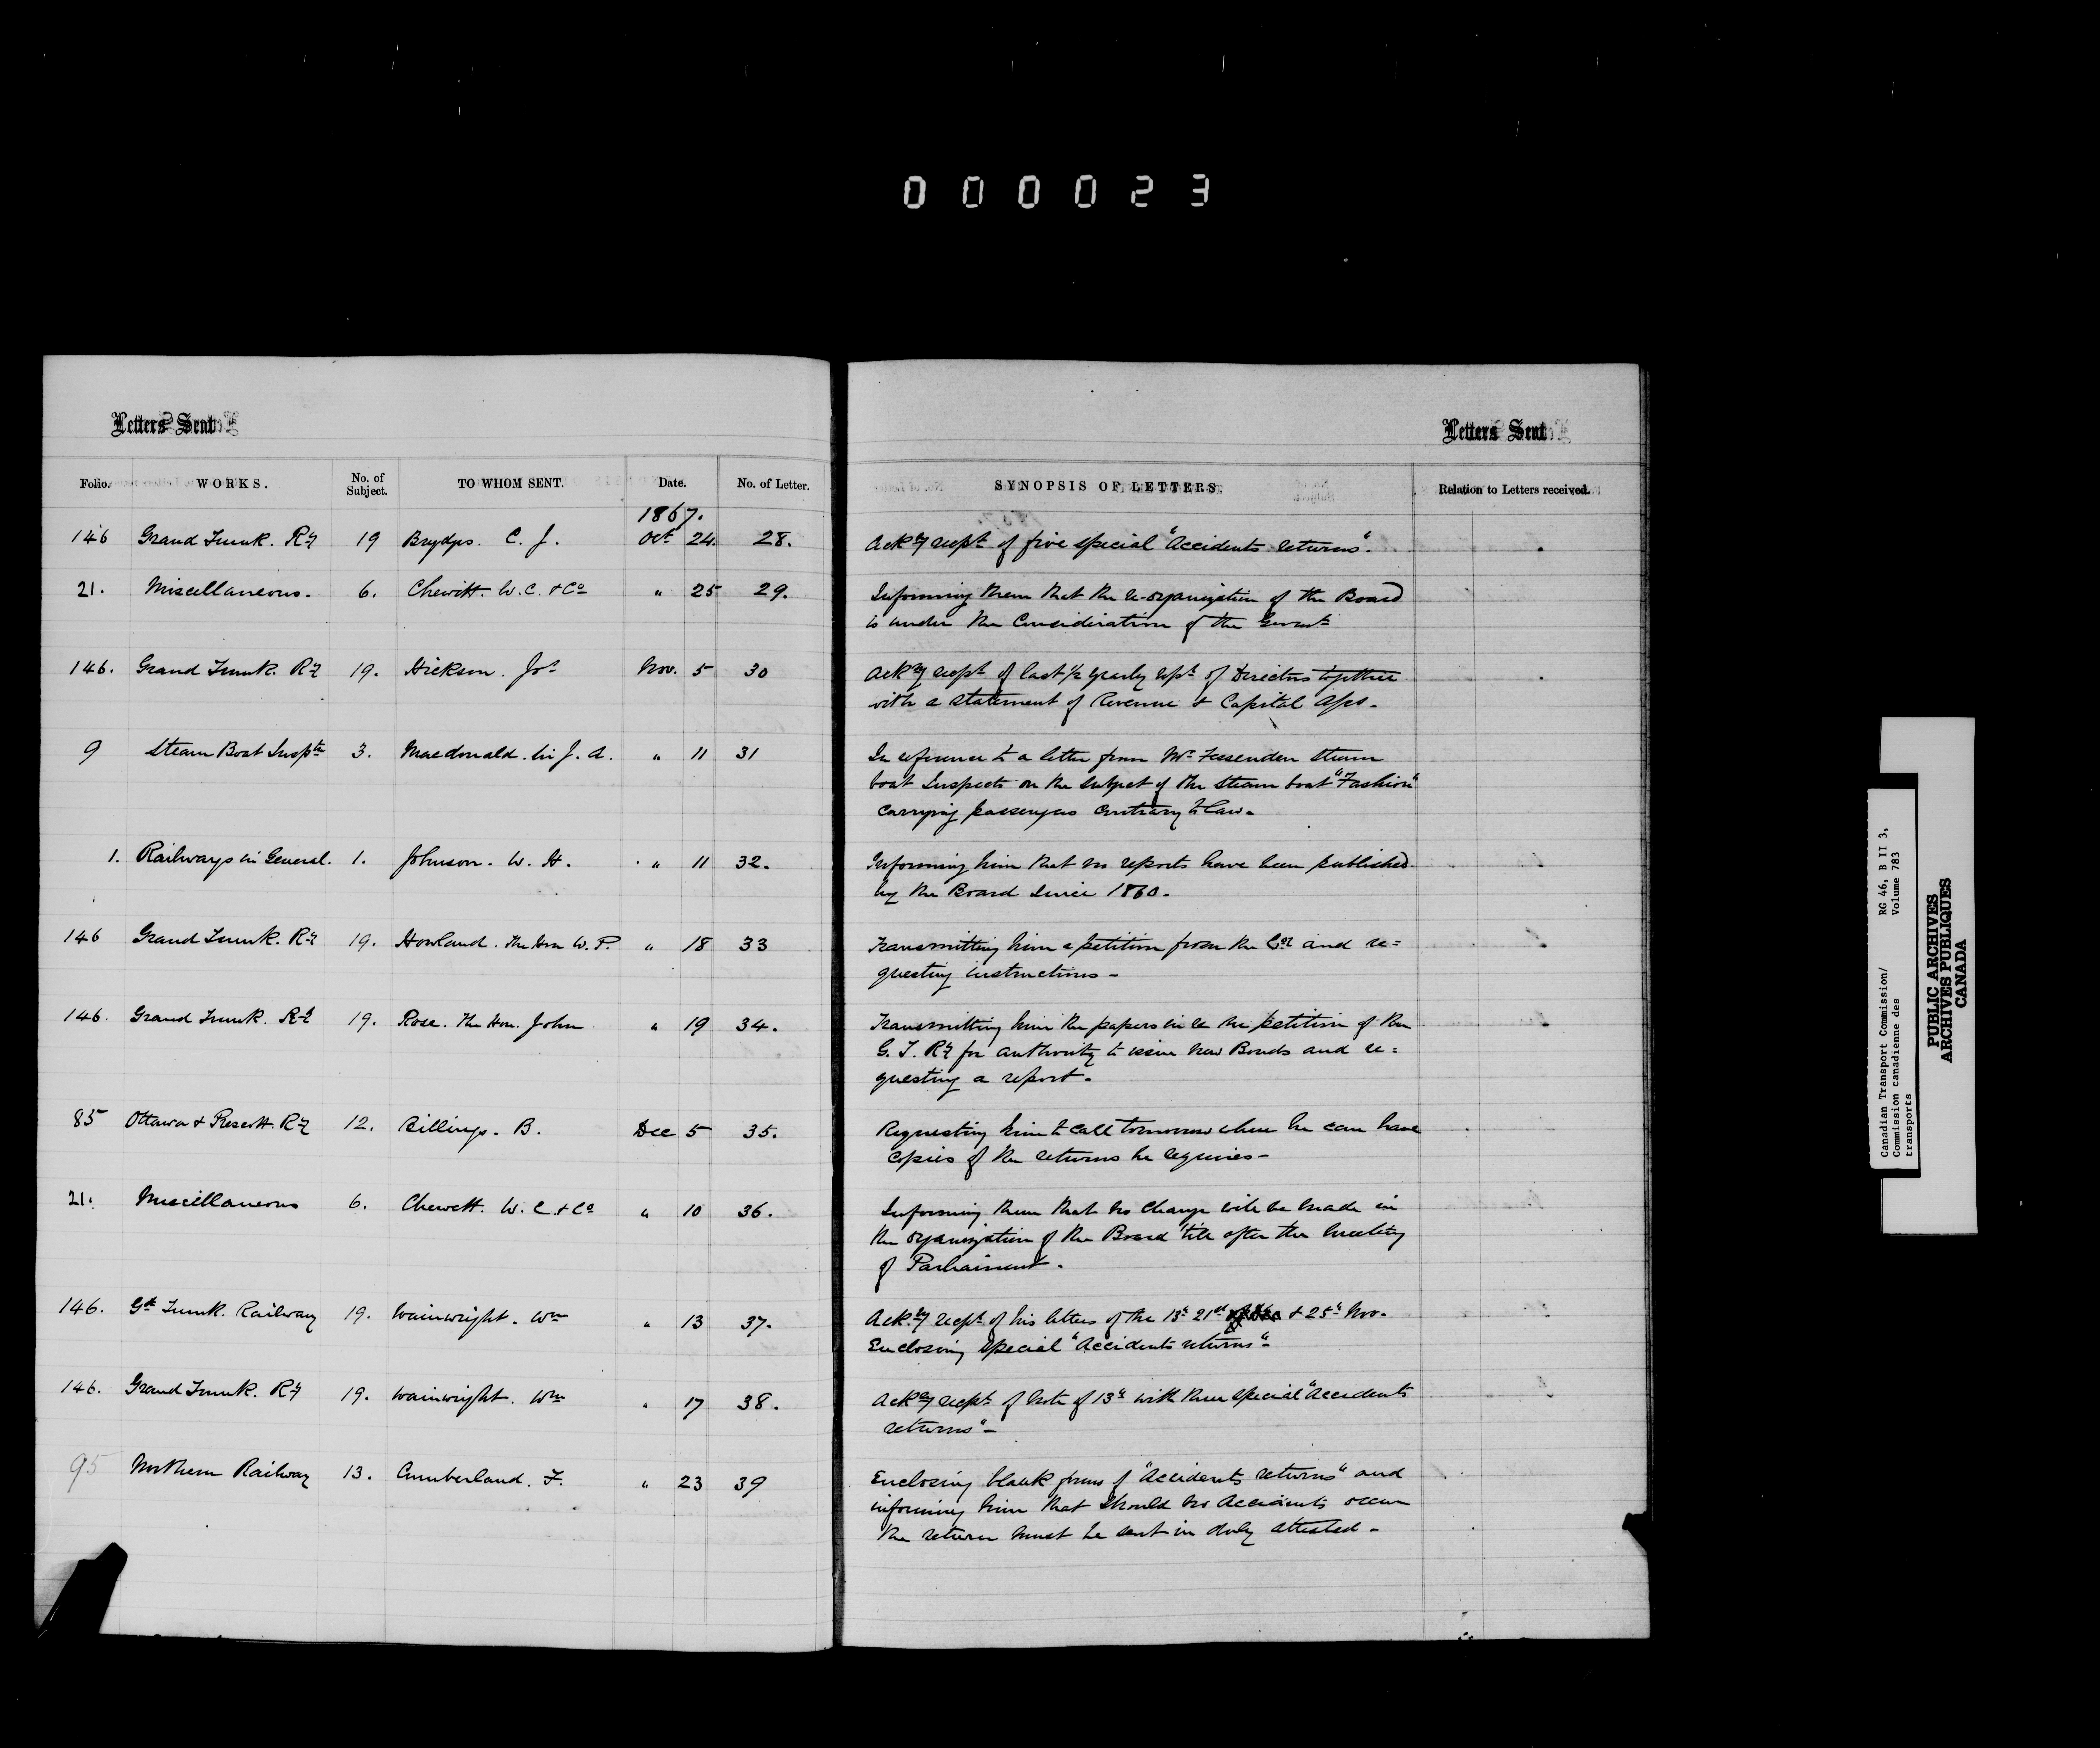 000023
Letters Sent
Letters Sent
Folio. WORKS. No. of Subject. TO WHOM SENT. Date. No. of Letter. SYNOPSIS OF LETTERS. Relation to Letters received.
1867.
146 Grand Trunk. Ry 19 Brydges. C. J. Oct 24. 28. Ackg recpt of five special "Accidents returns".
21. Miscellaneous. 6. Chewett. W. C. & Co " 25 29. Informing them that the re-organization of the Board
is under the Consideration of the Govmt
146. Grand Trunk. Ry 19. Hickson. Jos Nov. 5 30 Ackg recpt of last 1/2 yearly rept of Directors together
with a statement of Revenue & Capital Apps.
9 Steam Boat Insptn 3. Macdonald. Sir J. A. " 11 31 In reference to a letter from Mr Fessenden steam
boat Inspector on the subject of the steam boat "Fashion"
carrying passengers contrary to law.
1. Railways in General. 1. Johnson. W. H. " 11 32. Informing him that no reports have been published
by the Board since 1860.
146 Grand Trunk. Ry 19. Howland. The Hon W. P. " 18 33 Transmitting him a petition from the Coy and re=
questing instructions -
146. Grand Trunk. Ry 19. Rose. The Hon. John " 19 34. Transmitting him the papers in re the petition of the
G. T. Ry for authority to issue New Bonds and re=
questing a report.
85 Ottawa & Prescott. Ry 12. Billings. B. Dec 5 35. Requesting him to call tomorrow when he can have
copies of the returns he requires -
21. Miscellaneous 6. Chewett. W. C. & Co " 10 36. Informing them that no change will be made in
the organization of the Board 'till after the meeting
of Parliament.
146. Gd Trunk. Railway 19. Wainwright. Wm " 13 37. Ackg recpt of his letters of the 13th 21st & 25th Nov.
Enclosing special "Accidents returns".
146. Grand Trunk. Ry 19. Wainwright. Wm " 17 38. Ackg recpt of note of 13th with three special "Accidents
returns" -
95 Northern Railway 13. Cumberland. F. " 23 39 Enclosing blank forms of "Accidents returns" and
informing him that should no accidents occur
the return must be sent in duly attested -
Canadian Transport Commission/ RG 46, B II 3,
Commission canadienne des Volume 783
transports
PUBLIC ARCHIVES
ARCHIVES PUBLIQUES
CANADA